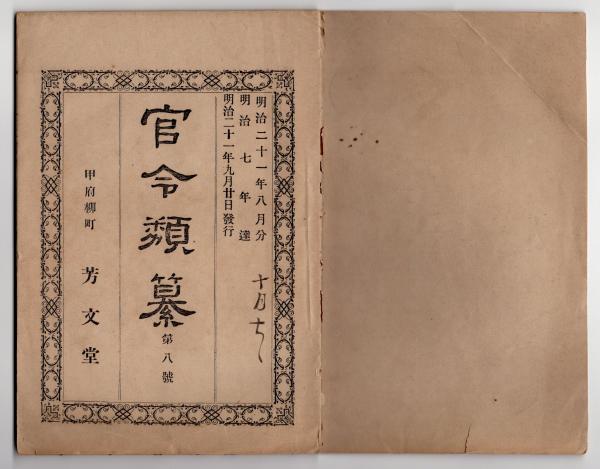 明治二十一年八月分
明治七年達
明治二十一年九月廿日發行
官令類纂
第八號
甲府柳町
芳文堂